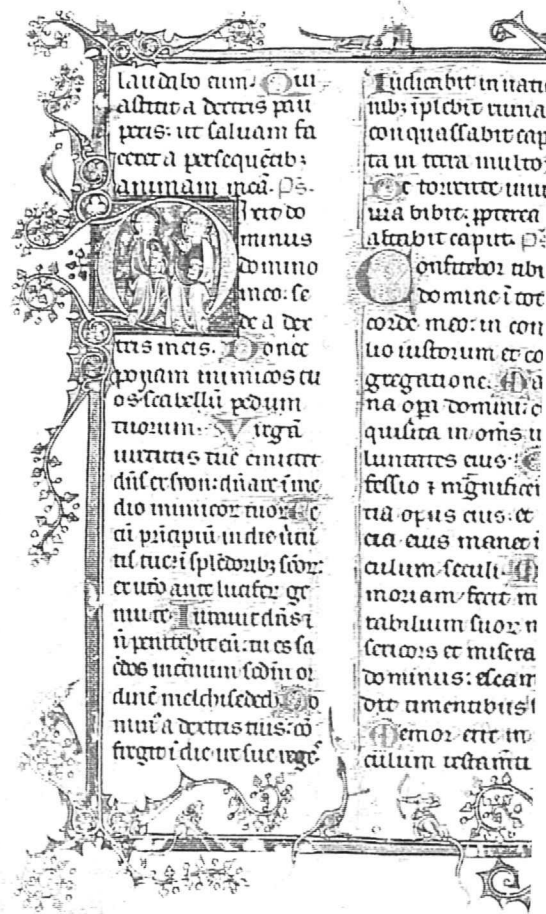 laudabo eum. Qui
astitit a dextris pau
peris: ut saluam fa
ceret a persequētibꝫ
animam meā. Ps.
Dixit do
minus
domino
meo: se
de a dex
tris meis. Donec
ponam inimicos tu
os scabellū pedum
tuorum. Virgā
uirtutis tue emittet
dn̄s ex syon: dn̄are ī me
dio inimicoꝝ tuoꝝ. Te
cū pͥncipiū in die uͥtu
tis tue ī splēdoribꝫ sc̄oꝝ:
ex utō ante lucifeꝝ ge
nui te. Iurauit dn̄s ⁊
n̄ penitebit eū: tu es sa
c̄dos in et̄num sc̄dm or
dinē melchisedech. Do
minꝰ a dextris tuis: cō
fregit ī die ire sue reges.
Iudicabit in nati
nibꝫ īplebit ruina
conquassabit cap
ta in terra multoꝝ
De torrente in ui
uia bibit: ꝓpterea
altabit caput. Ps
Confitebor tibi
domine ī tot
corde meo: in con
lio iustorum et co
gregatione. Ma
na opa domini: e
quisita in om̄s u
luntates eius. C
fessio ⁊ mḡnificē
tia opus eius: et
cia eius manet ī
culum seculi. M
moriam fecit m
rabilium suoꝝ m
sericors et misera
dominus: escam
dit timentibus s
Memor erit in
culum testamti